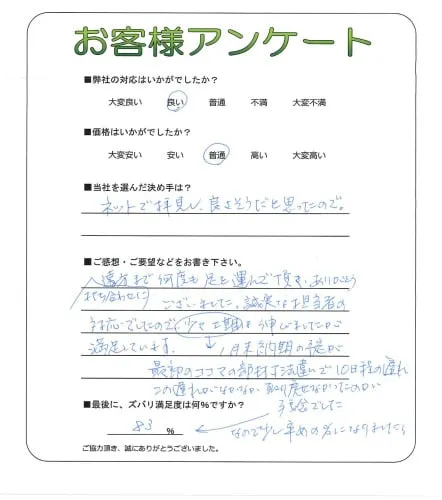 お客様アンケート
■弊社の対応はいかがでしたか?
大変良い 良い 普通 不満 大変不満
■価格はいかがでしたか?
大変安い 安い 普通 高い 大変高い
■当社を選んだ決め手は?
ネットで拝見し、良さそうだと思ったので。
■ご感想・ご要望などをお書き下さい。
遠方まで何度も足を運んで頂き、ありがとう
打ち合わせに
ございました。誠実な担当者の
対応でしたので 少々工期は伸びましたが
満足しています。 ↓ 月末納期の予定が
最初のココマの部材寸法違いで10日程の遅れ
この遅れがなかなか取り戻せなかったのが
残念でした
■最後に、ズバリ満足度は何%ですか?
83 %
なので少し辛めの%になりました
ご協力頂き、誠にありがとうございました。